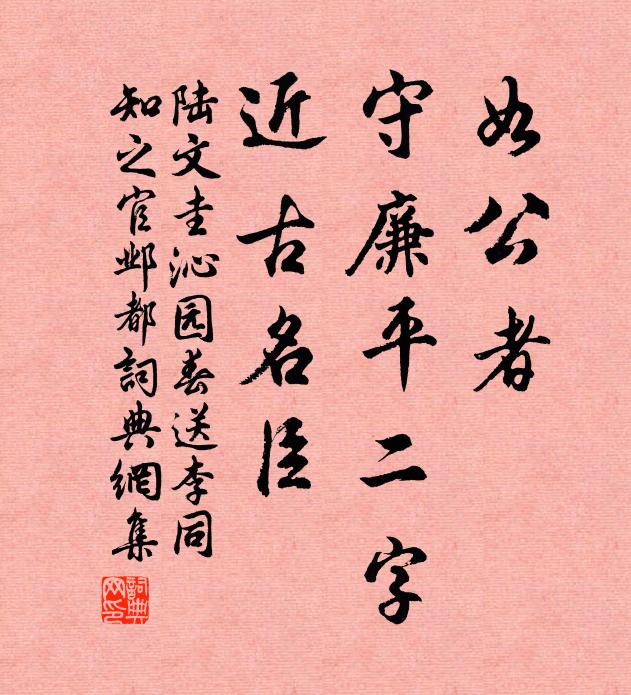 如公者
守廉平二字
近古名臣
陆文圭沁园春送李同
知之官邺都詞典網集
詞典網印